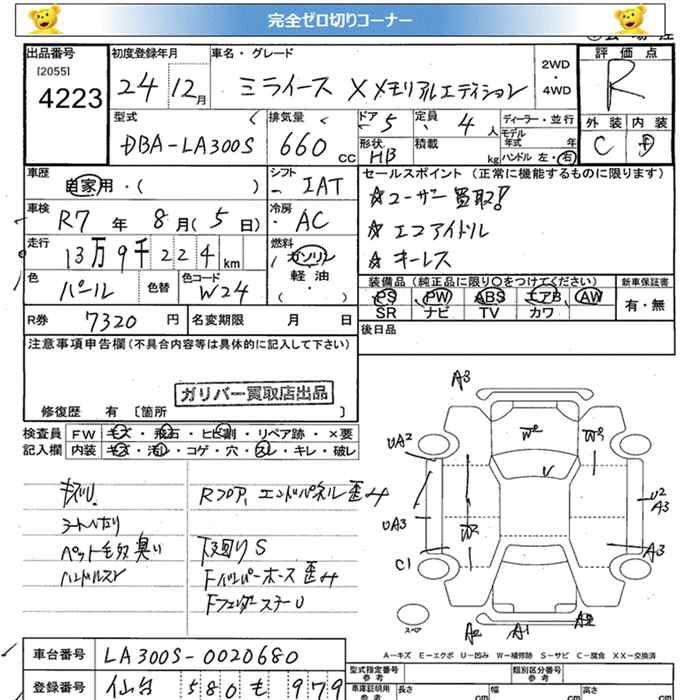 完全ゼロ切りコーナー
出品番号
[2055]
4223
初度登録年月
24 12月
車名・グレード
ミライース X メモリアルエディション
2WD
・
4WD
評価点
R
外装 内装
C D
型式
DBA-LA300S
排気量
660 CC
ドア 5
定員 4 人
形状 HB
積載 kg
ディーラー・並行
モデル年式 年
ハンドル 左・右
車歴
自家用・( )
シフト
IAT
車検
R7 年 8 月 ( 5 日)
冷房
AC
走行
13万9千224 km
燃料
ガソリン
軽・油
・( )
色
パール
色替
色コード
W24
R券 7320 円
名変期限 月 日
セールスポイント(正常に機能するものに限ります)
☆ユーザー買取!
☆エコアイドル
☆キーレス
装備品(純正品に限り○をつけてください)
新車保証書
PS PW ABS エアB AW
SR ナビ TV カワ
有・無
後日品
注意事項申告欄(不具合内容等は具体的に記入して下さい)
ガリバー買取店出品
修復歴 有 〔箇所 〕
検査員記入欄
FW キズ・飛石・ヒビ割・リペア跡・×要
内装 キズ・汚れ・コゲ・穴・スレ・キレ・破レ
Rフロア、エンドパネル歪み
下回りS
ペット毛多 臭い
ハンドルスレ
A3
UA2
W2
W3
U
UA3
W2
U2
A3
C1
A3
A2
A1
A2
スペア
A-キズ E-エクボ U-凹み W-補修跡 S-サビ C-腐食 XX-交換済
車台番号 LA300S-0020680
登録番号 仙台 580 も 979
型式指定番号
参考
類別区分番号
参考
車庫証明用
参考
長さ cm
幅 cm
高さ cm